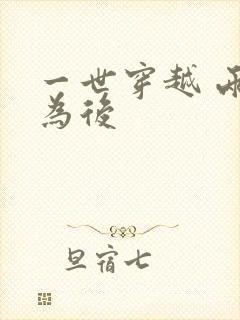 一世穿越
為後
旦宿七